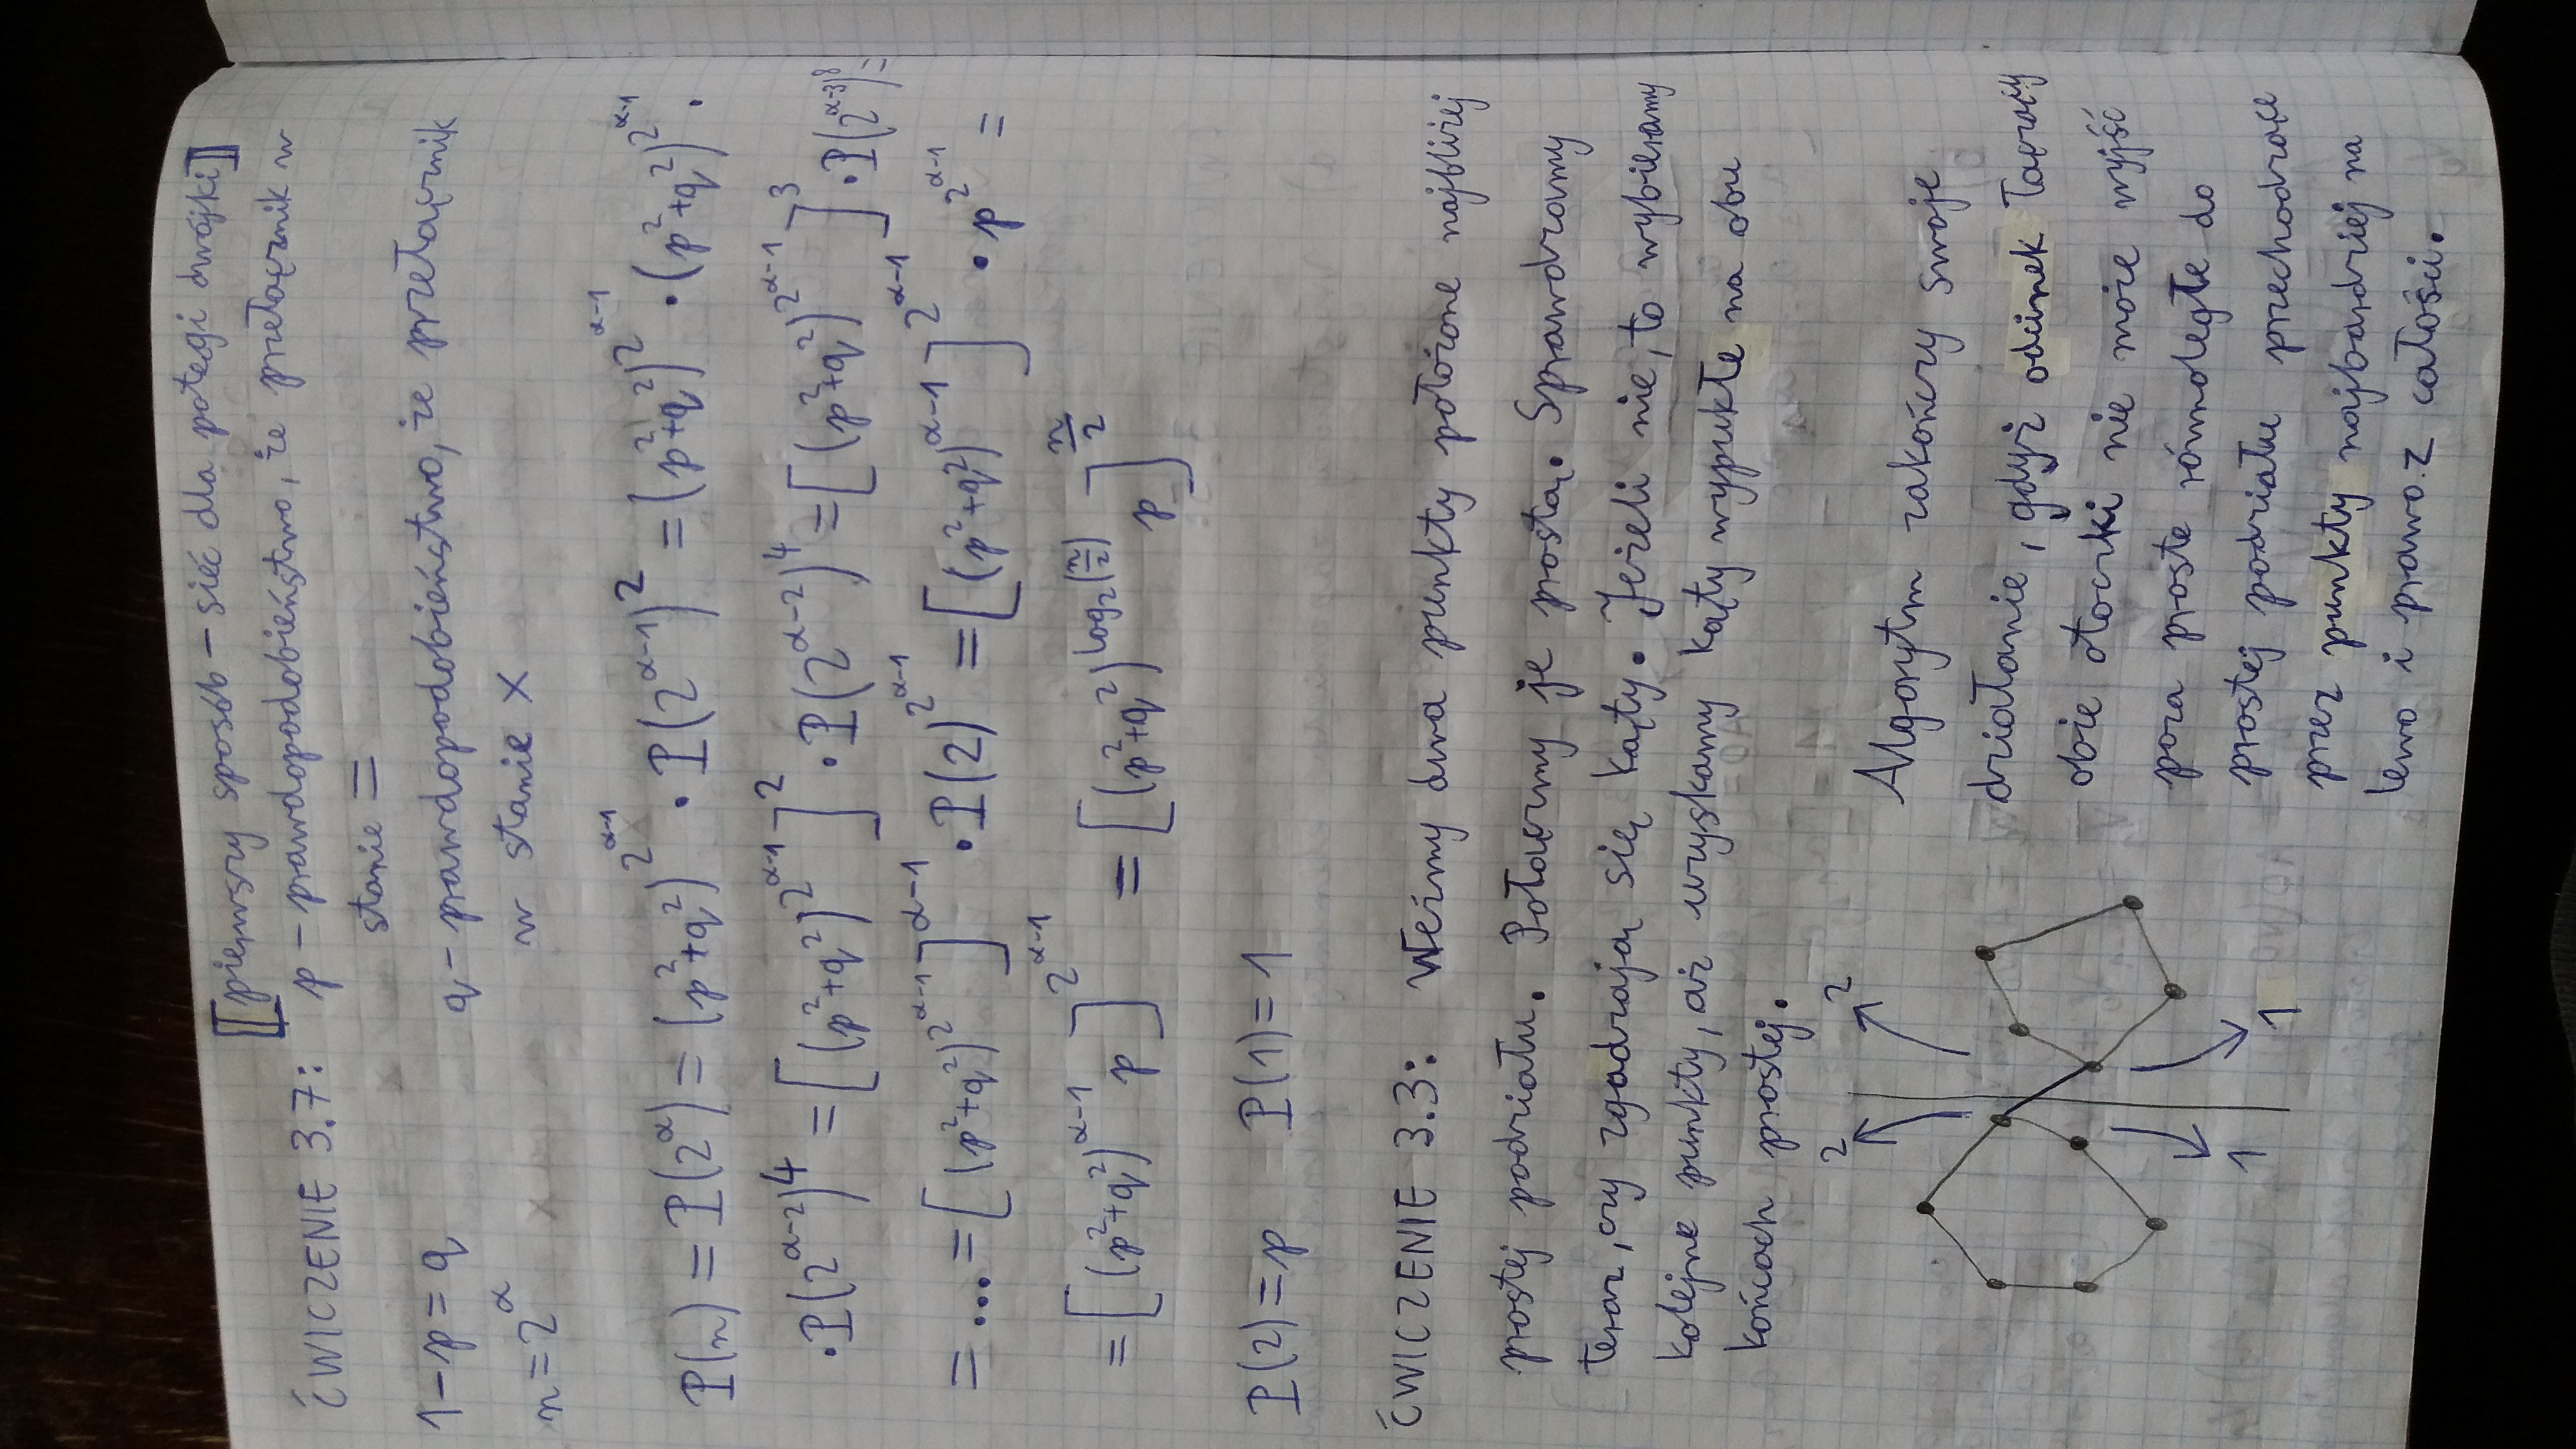 [[pierwszy sposób – sieć dla potęgi dwójki]]
ĆWICZENIE 3.7: p – prawdopodobieństwo, że przełącznik w
stanie =
1–p = q
q – prawdopodobieństwo, że przełącznik
n = 2^α
w stanie ×
P(n) = P(2^α) = (p²+q²)^{2^{α-1}} · P(2^{α-1})² = (p²+q²)^{2^{α-1}} · (p²+q²)^{2^{α-1}} ·
· P(2^{α-2})⁴ = [(p²+q²)^{2^{α-1}}]² · P(2^{α-2})⁴ = [(p²+q²)^{2^{α-1}}]³ · P(2^{α-3})⁸ =
= ... = [(p²+q²)^{2^{α-1}}]^{α-1} · P(2)^{2^{α-1}} = [(p²+q²)^{α-1}]^{2^{α-1}} · p^{2^{α-1}} =
= [(p²+q²)^{α-1} p]^{2^{α-1}} = [(p²+q²)^{log₂(n/2)} p]^{n/2}
P(2) = p P(1) = 1
ĆWICZENIE 3.3: Weźmy dwa punkty położone najbliżej
prostej podziału. Połączmy je prostą. Sprawdzamy
teraz, czy zgadzają się kąty. Jeżeli nie, to wybieramy
kolejne punkty, aż uzyskamy kąty wypukłe na obu
końcach prostej.
2 2
1
1
Algorytm zakończy swoje
działanie, gdyż odcinek łączący
obie otoczki nie może wyjść
poza proste równoległe do
prostej podziału przechodzące
przez punkty najbardziej na
lewo i prawo z całości.